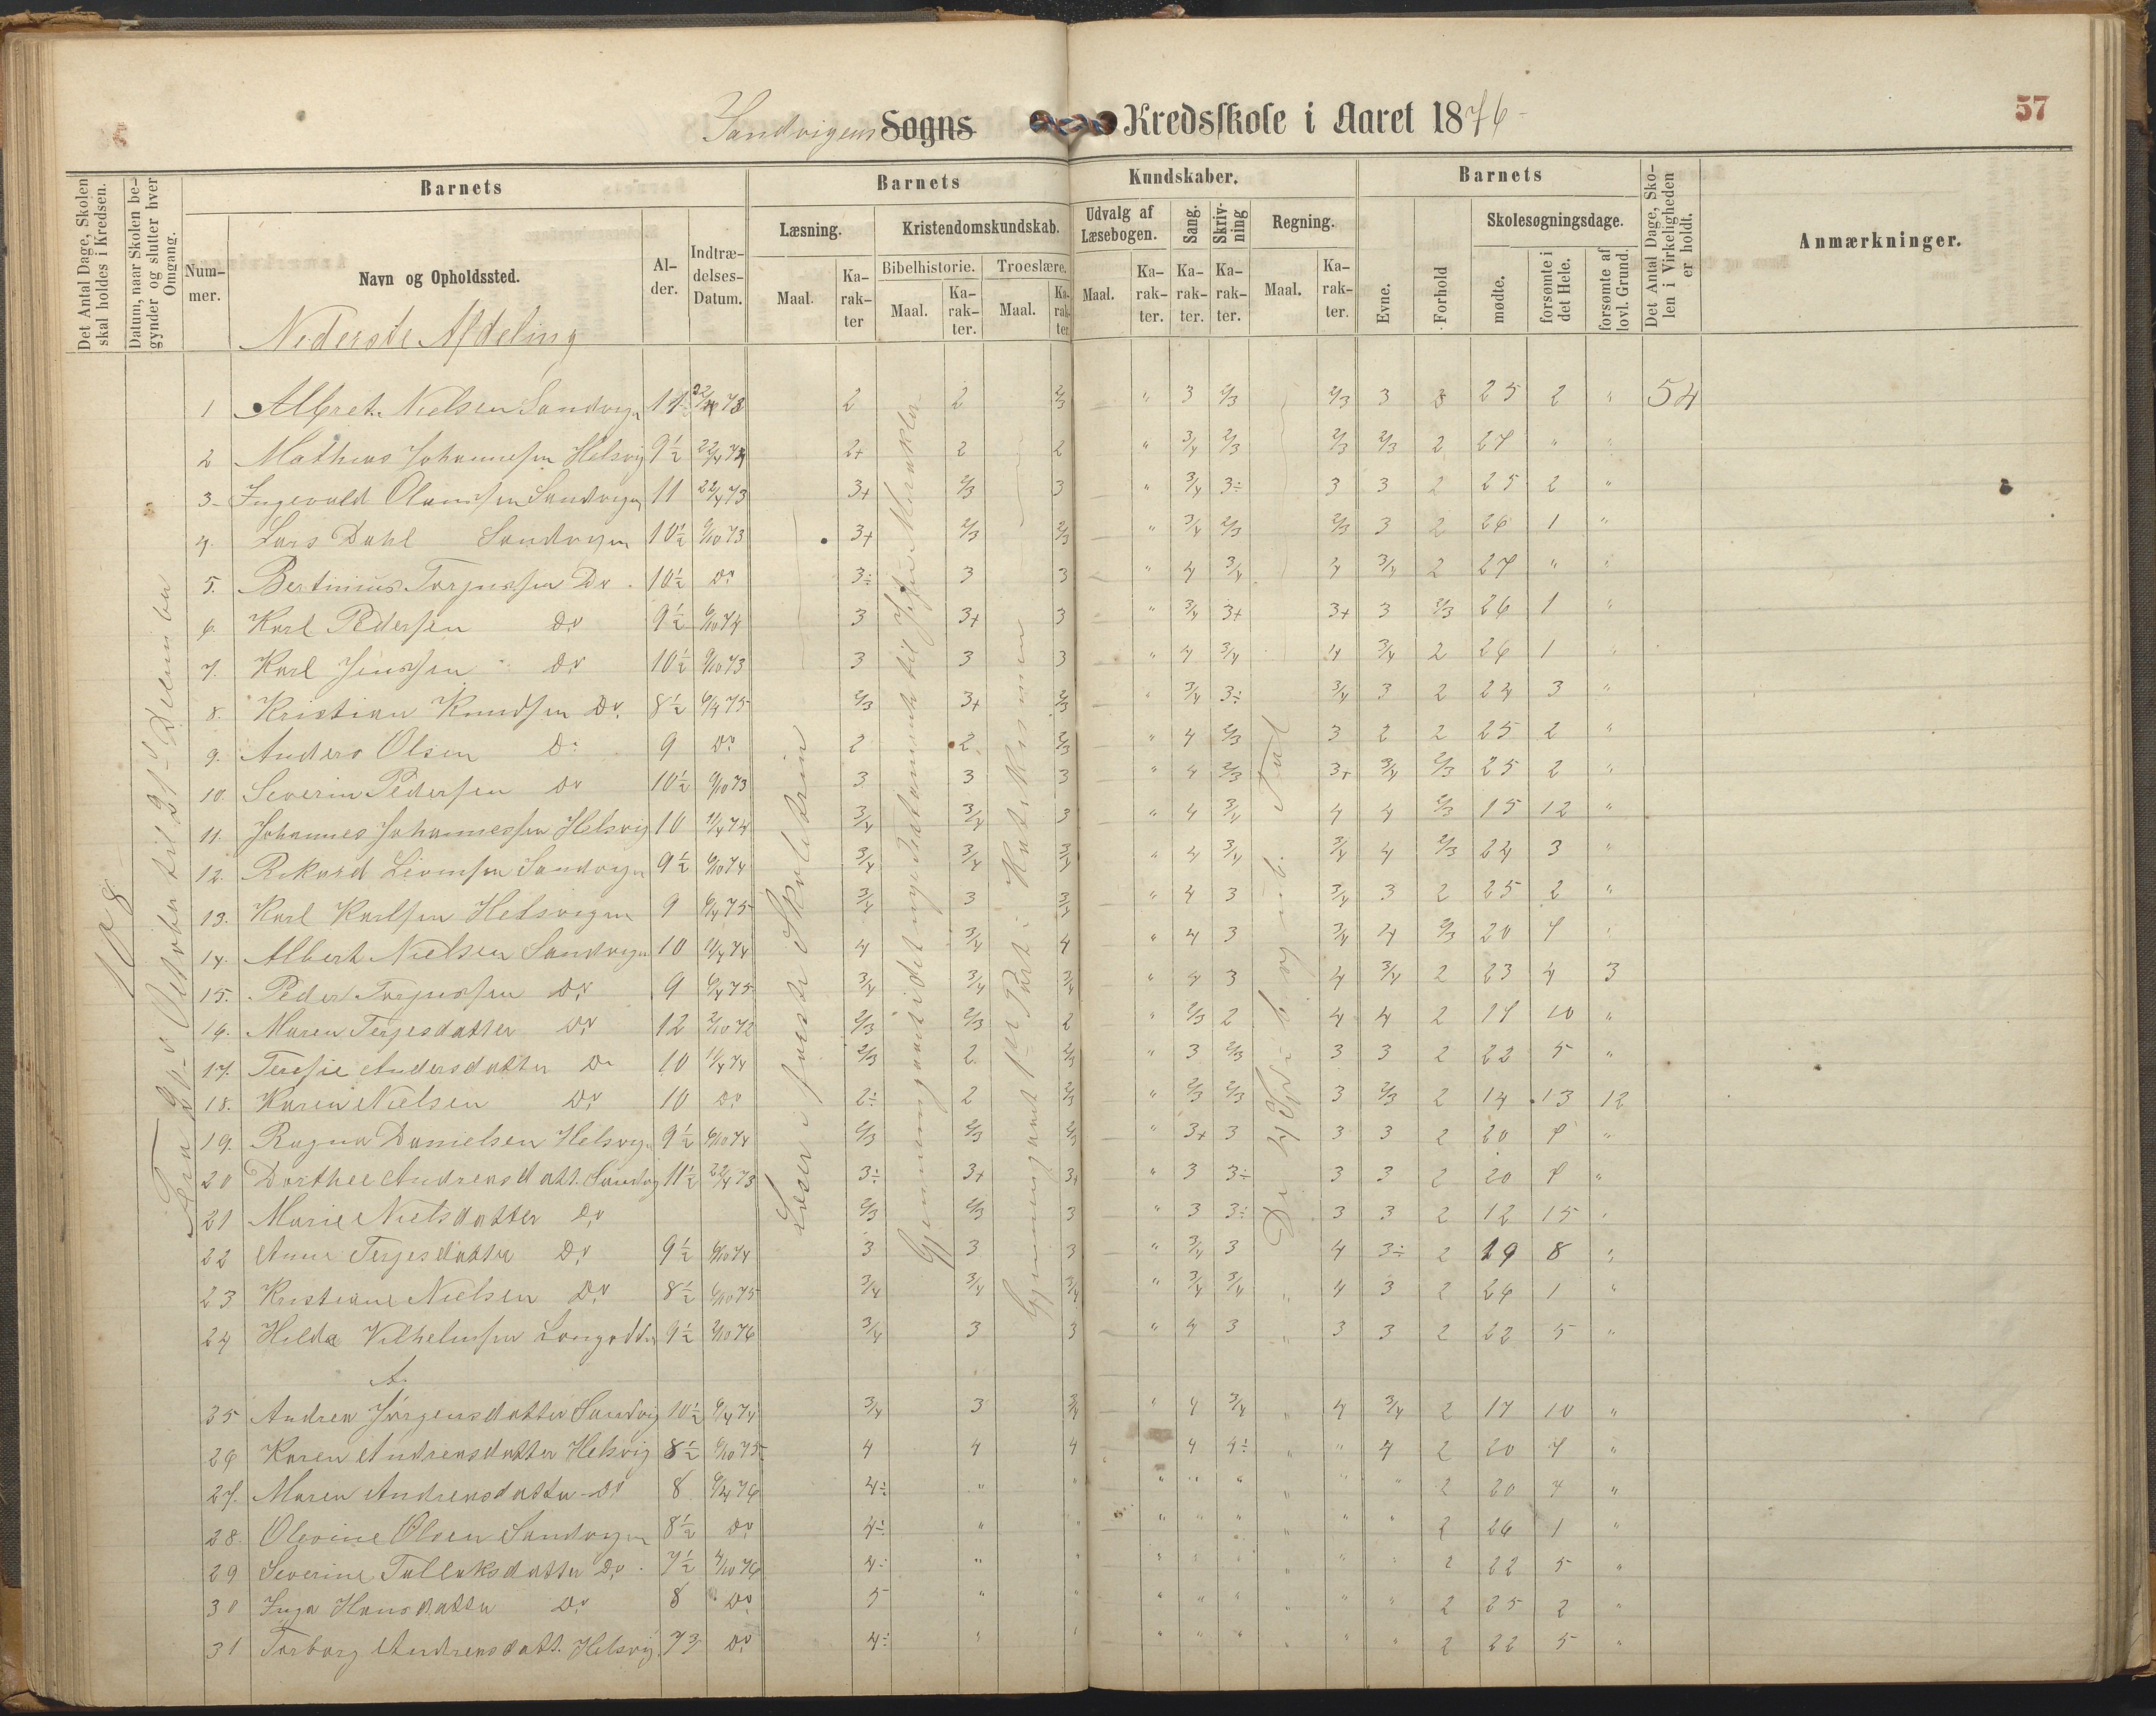 57
Sandvigens Sogns Kredsskole i Aaret 1876
Det Antal Dage, Skolen skal holdes i Kredsen.
Datum, naar Skolen begynder og slutter hver Omgang.
Barnets
Barnets
Kundskaber.
Barnets
Det Antal Dage, Skolen i Virkeligheden er holdt.
Anmærkninger.
Nummer.
Navn og Opholdssted.
Alder.
Indtrædelses-Datum.
Læsning.
Kristendomskundskab.
Bibelhistorie.
Troeslære.
Udvalg af Læsebogen.
Sang.
Skrivning
Regning.
Evne.
Forhold
Skolesøgningsdage.
mødte.
forsømte i det Hele.
forsømte af lovl. Grund.
Maal. Karakter Maal. Karakter. Maal. Karakter Maal. Karakter. Karakter. Karakter. Maal. Karakter.
Nederste Afdeling
108
til 21de Desember
Læser i første Skoletrin
Gjennemgaaet i det nye Testamente til Jesu Mirakler
Gjennemgaaet 1ste Part i Katekismen
1 Albret Nielsen Sandvigen 2 2 2/3 " 3 2/3 2/3 3 3 25 2 " 54
2 Mathias Johannesen Helsvig 9½ 2+ 2 2 " 3/4 2/3 2/3 2/3 2 27 " "
3 Ingevald Olaussen Sandvigen 11 22/4 73 3+ 2/3 3 " 3/4 3÷ 3 3 2 25 2 "
4. Lars Dahl Sandvigen 10½ 9/10 73 3+ 2/3 2/3 " 3/4 2/3 2/3 3 2 26 1 "
5. Bertinius Torjussen Do 10½ Do 3÷ 3 3 " 4 3/4 4 3/4 2 27 " "
6. Karl Pedersen Do 9½ 6/10 74 3 3+ 3 " 3/4 3+ 3+ 3 2/3 26 1 "
7. Karl Jenssen Do 10½ 9/10 73 3 3 3 " 4 3/4 4 3/4 2 26 1 "
8. Kristian Knudsen Do 8½ 6/4 75 2/3 3+ 2/3 " 3/4 3÷ 3/4 3 2 24 3 "
9. Anders Olsen Do 9 Do 2 2 2/3 " 4 2/3 3 2 2 25 2 "
10. Severin Pedersen Do 10½ 9/10 73 3 3 3 " 4 2/3 3+ 3/4 2/3 25 2 "
11. Johannes Johannessen Helsvig 10 11/4 74 3/4 3/4 3 " 4 3/4 4 4 2/3 15 12 "
12. Rikard Sandvigen 9½ 6/10 74 3/4 3/4 3/4 " 4 3/4 3/4 4 2/3 24 3 "
13. Karl Karlsen Helsvigen 9 6/4 75 3/4 3 3/4 " 4 3 3/4 3 2 25 2 "
14. Albert Nielsen Sandvigen 10 11/4 74 4 3/4 4 " 4 3 3/4 4 2/3 20 7 "
15. Peder Torjussen Do 9 6/4 75 3/4 3/4 3/4 " 4 3 4 3/4 2 23 4 3
16. Maren Terjesdatter Do 12 2/10 72 2/3 2/3 2 " 2/3 2 4 4 2 17 10 "
17. Teresie Andersdatter Do 10 11/4 74 2/3 2 2/3 " 3 2/3 3 3 2 22 5 "
18. Karen Nielsen Do 10 Do 2÷ 2 2/3 " 2/3 2/3 3 2/3 2 14 13 12
19. Ragna Danielsen Helsvigen 9½ 6/10 74 2/3 2/3 2/3 " 3+ 3 3 3 2 20 7 "
20 Dorthee Andreasdatt. Sandvig 11½ 22/4 73 3÷ 3+ 3+ " 3 3÷ 3 3 2 20 7 "
21 Marie Nielsdatter Do 2/3 2/3 3 " 3 3÷ 3 3 2 12 15 "
22 Anne Terjesdatter Do 9½ 6/10 74 3 3 3 " 3/4 3 4 3÷ 2 19 8 "
23 Kristiane Nielsen Do 8½ 6/10 75 3/4 3/4 3/4 " 3/4 3/4 4 3 2 26 1 "
24 Hilda Vilhelmsen 9½ 2/10 76 3/4 3 3 " 4 3 3 3 2 22 5 "
A.
35 Andrea Jørgensdatter Sandvig 10½ 6/4 74 3/4 3 3/4 " 4 3/4 " 4 3/4 2 17 10 "
26 Karen Andreasdatter Helsvig 8½ 6/10 75 4 4 4 4 4÷ " " 4 2 20 7 "
27. Maren Andreasdatter Do 8 6/4 76 4÷ " " " " " " " " 2 20 7 "
28. Olevine Olsen Sandvigen 8½ Do 4÷ " " " " " " " " 2 26 1 "
29 Severine Tallaksdatter Do 7½ 4/10 76 4÷ " " " " " " " " 2 22 5 "
30 Inga Hansdatter Do 8 Do 5 " " " " " " " " 2 25 2 "
31 Torborg Andreasdatt. Helsvig Do 4÷ " " " " " " " " 2 22 5 "